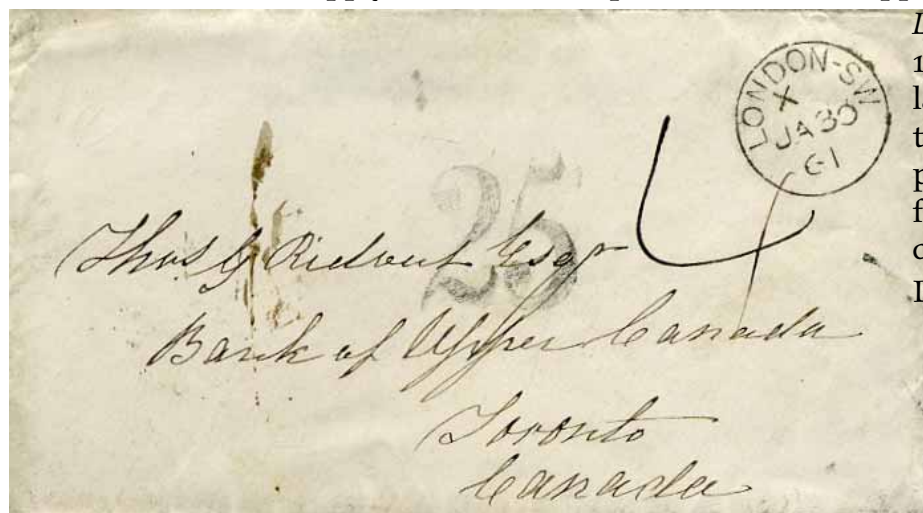 LONDON-SW
X
JA 30
61
25
4
Thos G Ridout Esqr
Bank of Upper Canada
Toronto
Canada